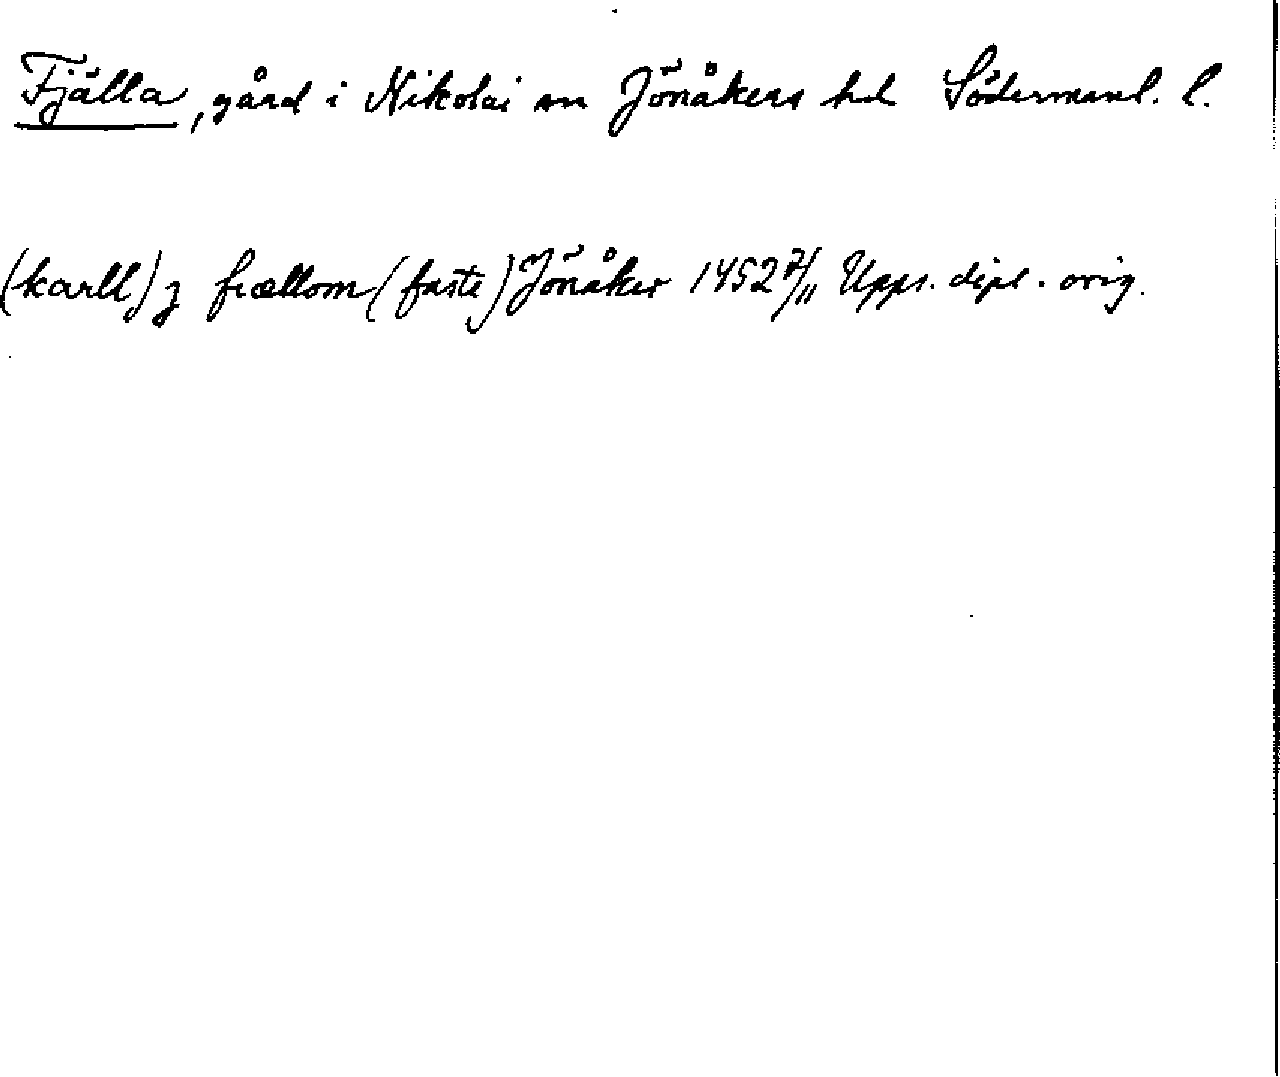 Fjälla, gård i Nikolai sn Jönåkers hd Södermanl. l.
(karll) j fiællom (faste) Jönåker 1452 7/11 Upps. dipl. orig.